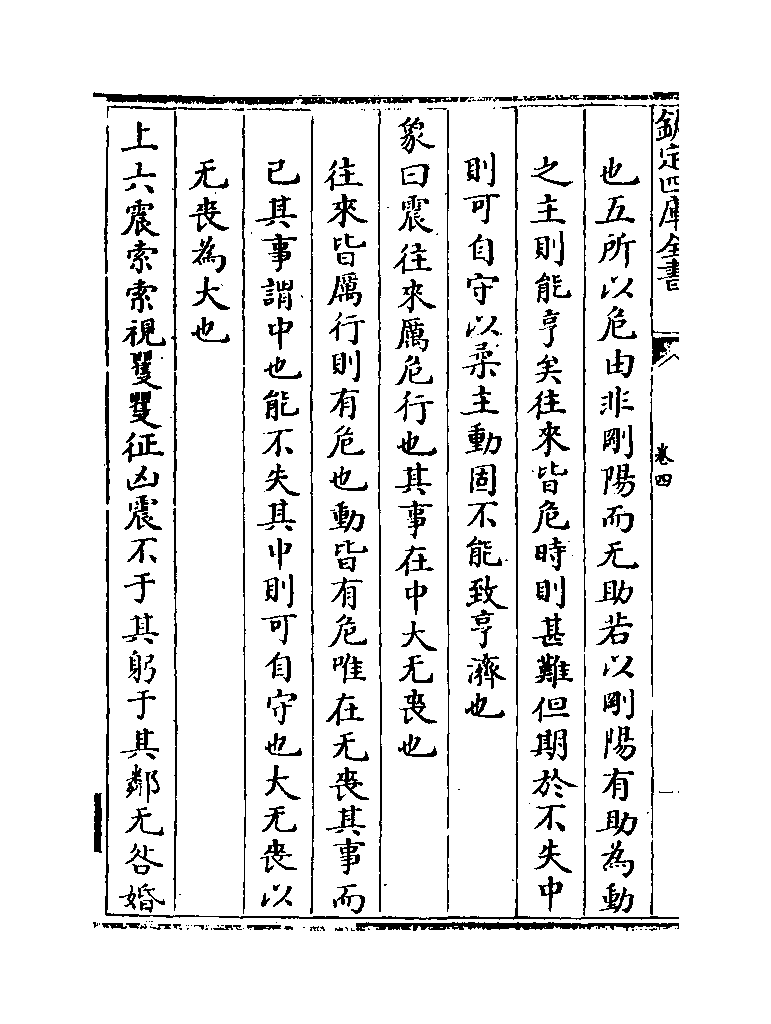 欽定四庫全書
卷四
也五所以危由非剛陽而无助若以剛陽有助為動
之主則能亨矣往來皆危時則甚難但期於不失中
則可自守以柔主動固不能致亨濟也
象曰震往來厲危行也其事在中大无喪也
往來皆厲行則有危也動皆有危唯在无喪其事而
已其事謂中也能不失其中則可自守也大无喪以
无喪為大也
上六震索索視矍矍征凶震不于其躬于其鄰无咎婚